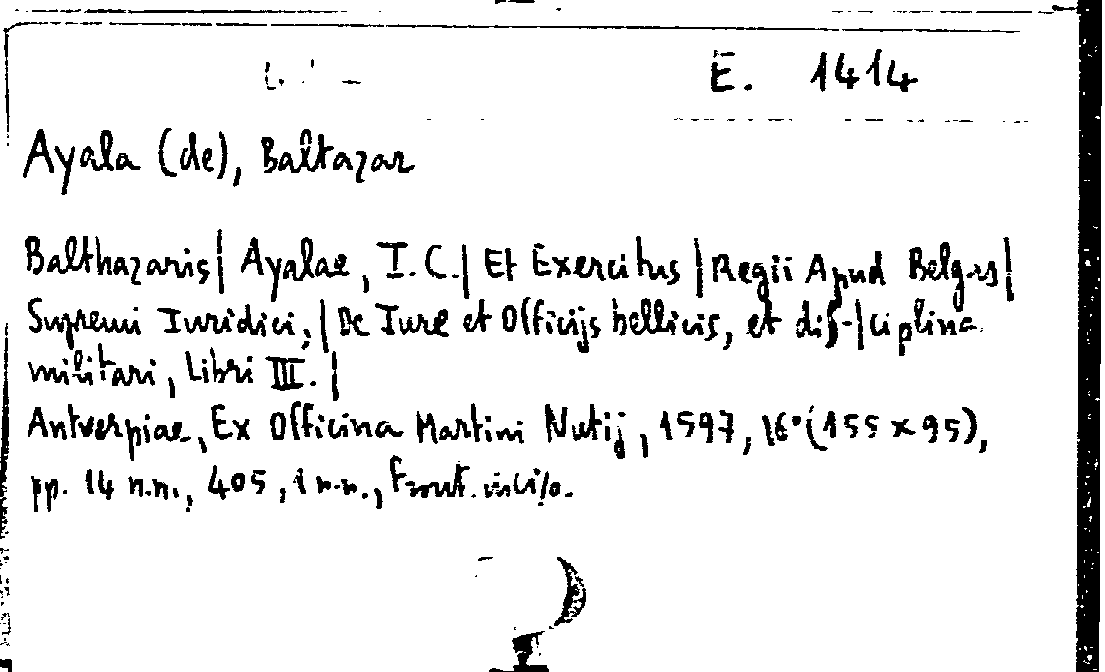 E. 1414
Ayala (de), Baltazar
Balthazaris| Ayalae, I.C.| Et Exercitus |Regii Apud Belgas|
Supremi Iuridici,| De Iure et Officijs bellicis, et dis-|ciplina
militari, Libri III.|
Antverpiae, Ex Officina Martini Nutij, 1597, 16°(155 x 95),
pp. 14 n.n., 405, 1 n.n., Front. inciso.